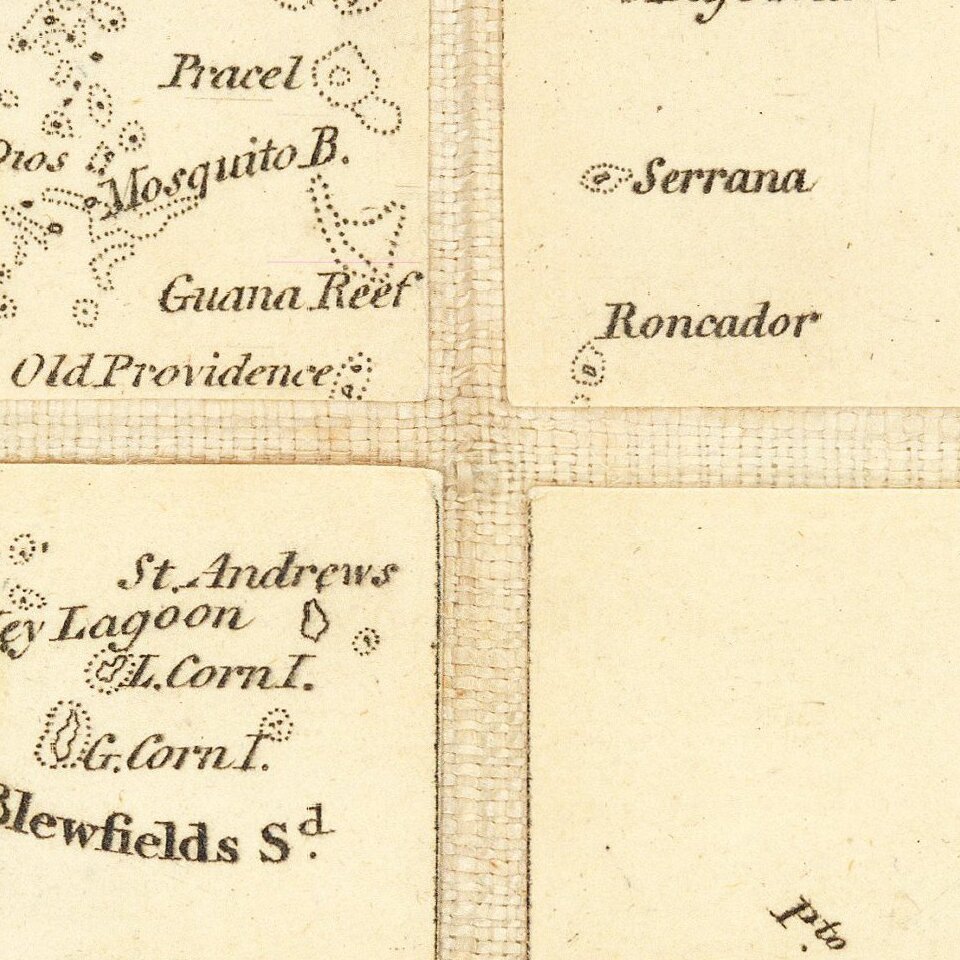 Pracel
Mosquito B.
Serrana
Guana Reef
Roncador
Old Providence
St. Andrews
Lagoon
L. Corn I.
G. Corn I.
Blewfields Sd.
Pto.